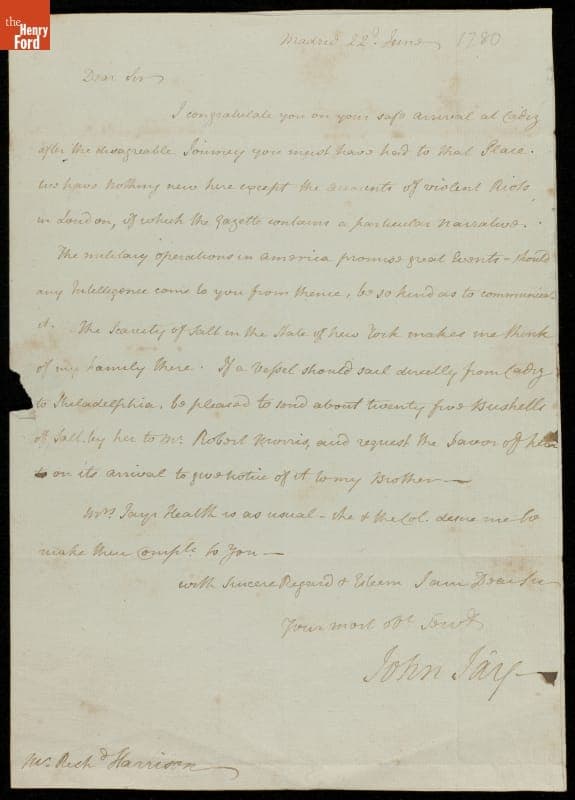 the
Henry
Ford
Madrid 22d. June 1780
Dear Sir
I congratulate you on your safe arrival at Cadiz
after the disagreable Journey you must have had to that Place.
we have nothing new here except the accounts of violent Riots
in London, of which the gazette contains a particular narrative.
The military operations in america promise great Events – should
any Intelligence come to you from thence, be so kind as to communicate
it. The Scarcity of Salt in the State of New York makes me think
of my family there. If a Vessel should sail directly from Cadiz
to Philadelphia, be pleased to send about twenty five Bushells
of Salt by her to Mr. Robert Morris, and request the favor of him
on its arrival to give notice of it to my Brother —
Mrs. Jays Health is as usual – she & the Col. desire me to
make their Complts. to you —
with sincere Regard & Esteem I am Dear Sir
Your most obt. Servt.
John Jay
Mr. Richd. Harrison